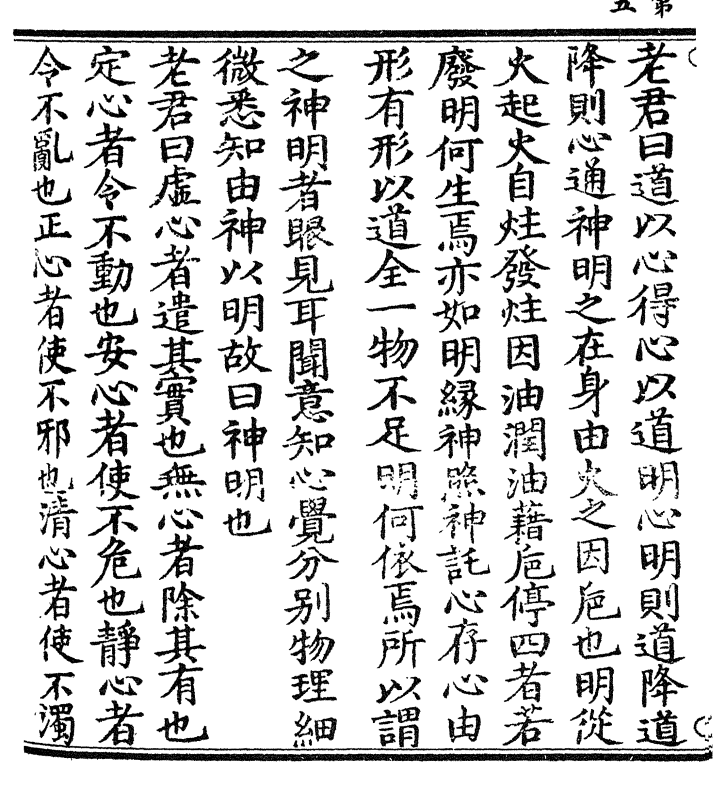 第
五
老君曰道以心得心以道明心明則道降道
降則心通神明之在身由火之因巵也明從
火起火自炷發炷因油潤油藉巵停四者若
廢明何生焉亦如明緣神照神託心存心由
形有形以道全一物不足明何依焉所以謂
之神明者眼見耳聞意知心覺分别物理細
微悉知由神以明故曰神明也
老君曰虛心者遣其實也無心者除其有也
定心者令不動也安心者使不危也靜心者
令不亂也正心者使不邪也清心者使不濁